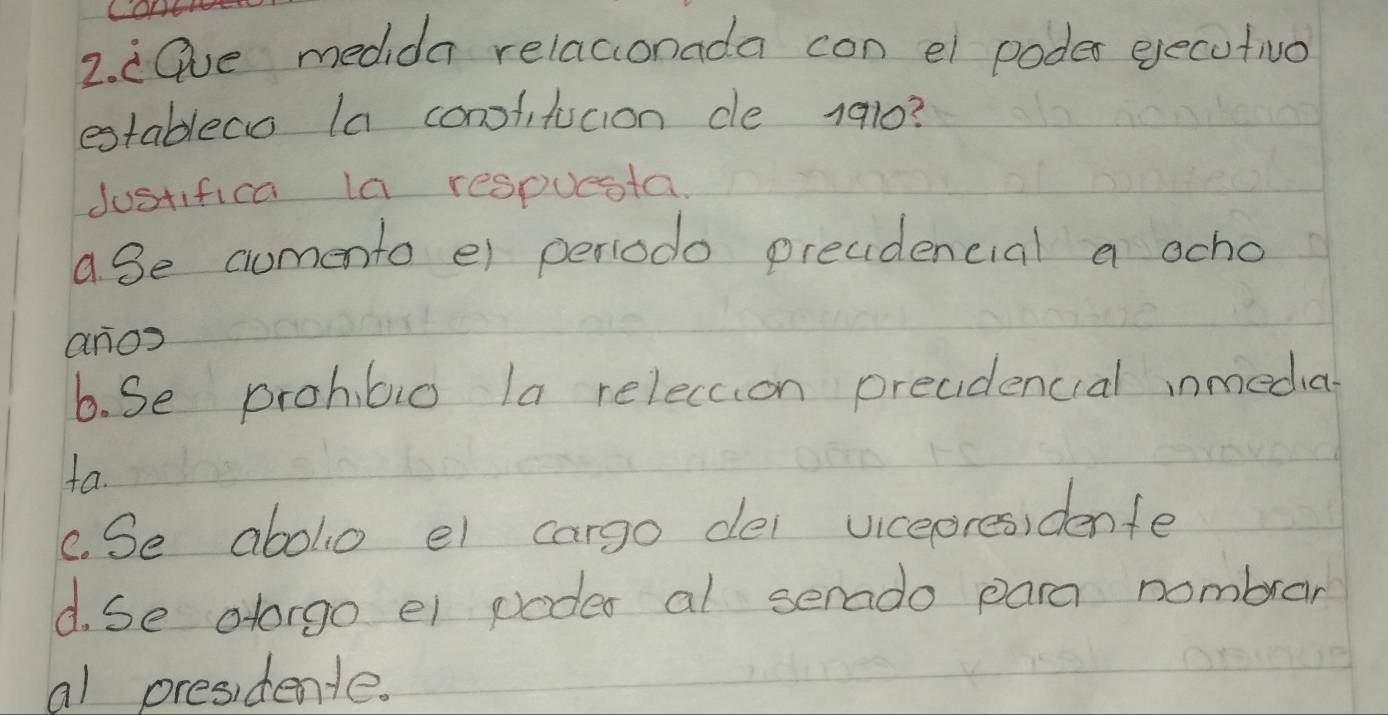 2. ¿Que medida relacionada con el poder ejecutivo
establecio la constitucion de 1910?
Justifica la respuesta.
a. Se aumento el periodo precidencial a ocho
años
b. Se prohibio la releccion precidencial inmedia-
ta.
c. Se abolio el cargo del vicepresidente
d. Se otorgo el poder al senado para nombrar
al presidente.